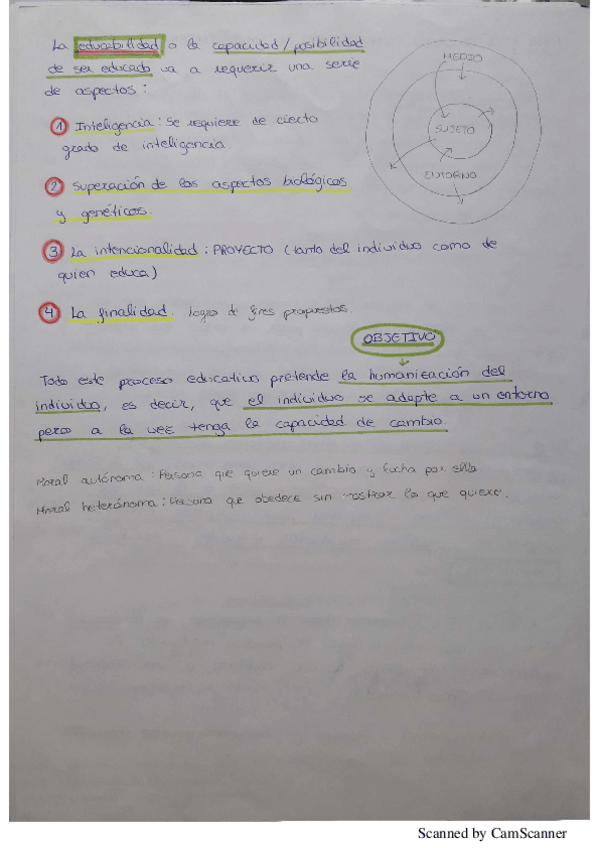 La educabilidad o la capacidad/posibilidad
de ser educado va a requerir una serie
de aspectos:
MEDIO
SUJETO
ENTORNO
1 Inteligencia: Se requiere de cierto
grado de inteligencia.
2 Superación de los aspectos biológicos
y genéticos.
3 La intencionalidad: PROYECTO (tanto del individuo como de
quien educa)
4 La finalidad. logro de fines propuestos.
OBJETIVO
Todo este proceso educativo pretende la humanización del
individuo, es decir, que el individuo se adapte a un entorno
pero a la vez tenga la capacidad de cambio.
Moral autónoma: Persona que quiere un cambio y lucha por ello
Moral heterónoma: Persona que obedece sin mostrar lo que quiere.
Scanned by CamScanner